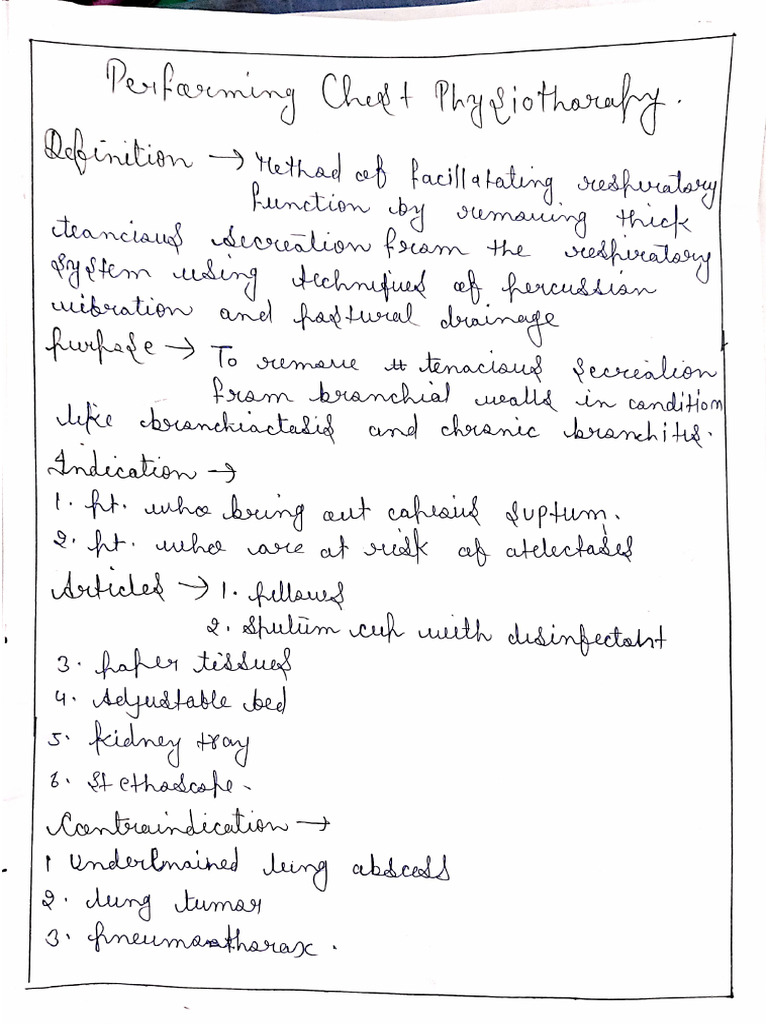 Performing Chest Physiotharapy.
Definition → Method of facillatating respiratory
function by removing thick
teancious secreation from the respiratory
system using techniques of percussion
vibration and postural drainage
Purpose → To remove tenacious secreation
from bronchial walls in condition
like bronchiactasis and chronic bronchitis.
Indication →
1. pt. who bring out copious suptum.
2. pt. who are at risk of atelectases
Articles → 1. pillows
2. Sputum cup with disinfectant
3. paper tissues
4. Adjustable bed
5. kidney tray
6. Stethoscope.
Contraindication →
1 lung abscess
2. lung tumor
3. pneumothorax.